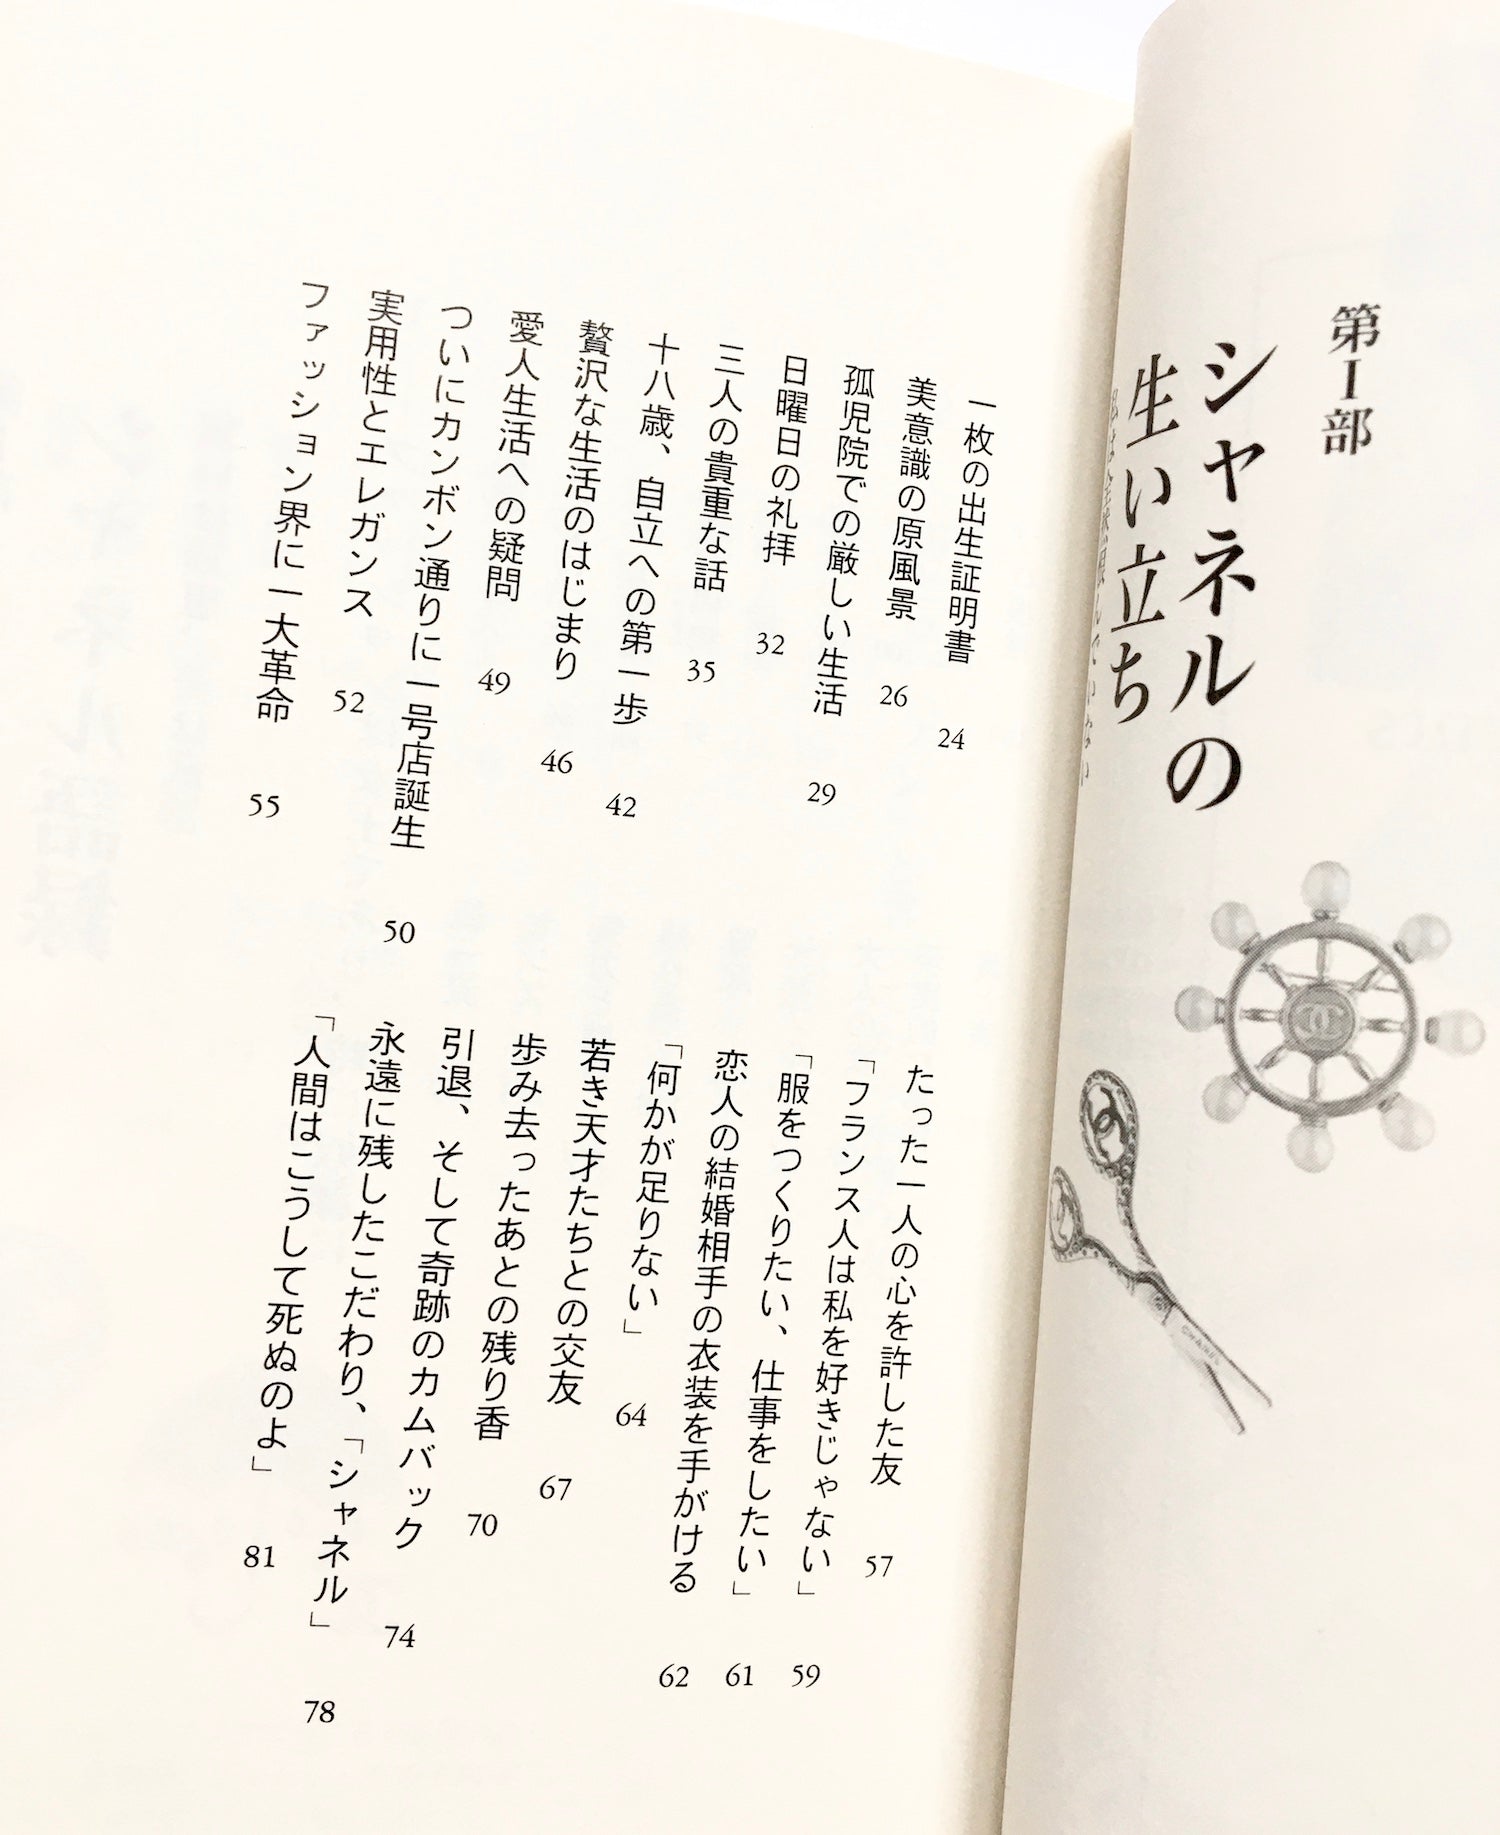 第Ⅰ部
シャネルの
生い立ち
一枚の出生証明書 24
美意識の原風景 26
孤児院での厳しい生活 29
日曜日の礼拝 32
三人の貴重な話 35
十八歳、自立への第一歩 42
贅沢な生活のはじまり 46
愛人生活への疑問 49
ついにカンボン通りに一号店誕生 50
実用性とエレガンス 52
ファッション界に一大革命 55
たった一人の心を許した友 57
「フランス人は私を好きじゃない」 59
「服をつくりたい、仕事をしたい」 61
恋人の結婚相手の衣装を手がける 62
「何かが足りない」 64
若き天才たちとの交友 67
歩み去ったあとの残り香 70
引退、そして奇跡のカムバック 74
永遠に残したこだわり、「シャネル」 78
「人間はこうして死ぬのよ」 81
CHANEL